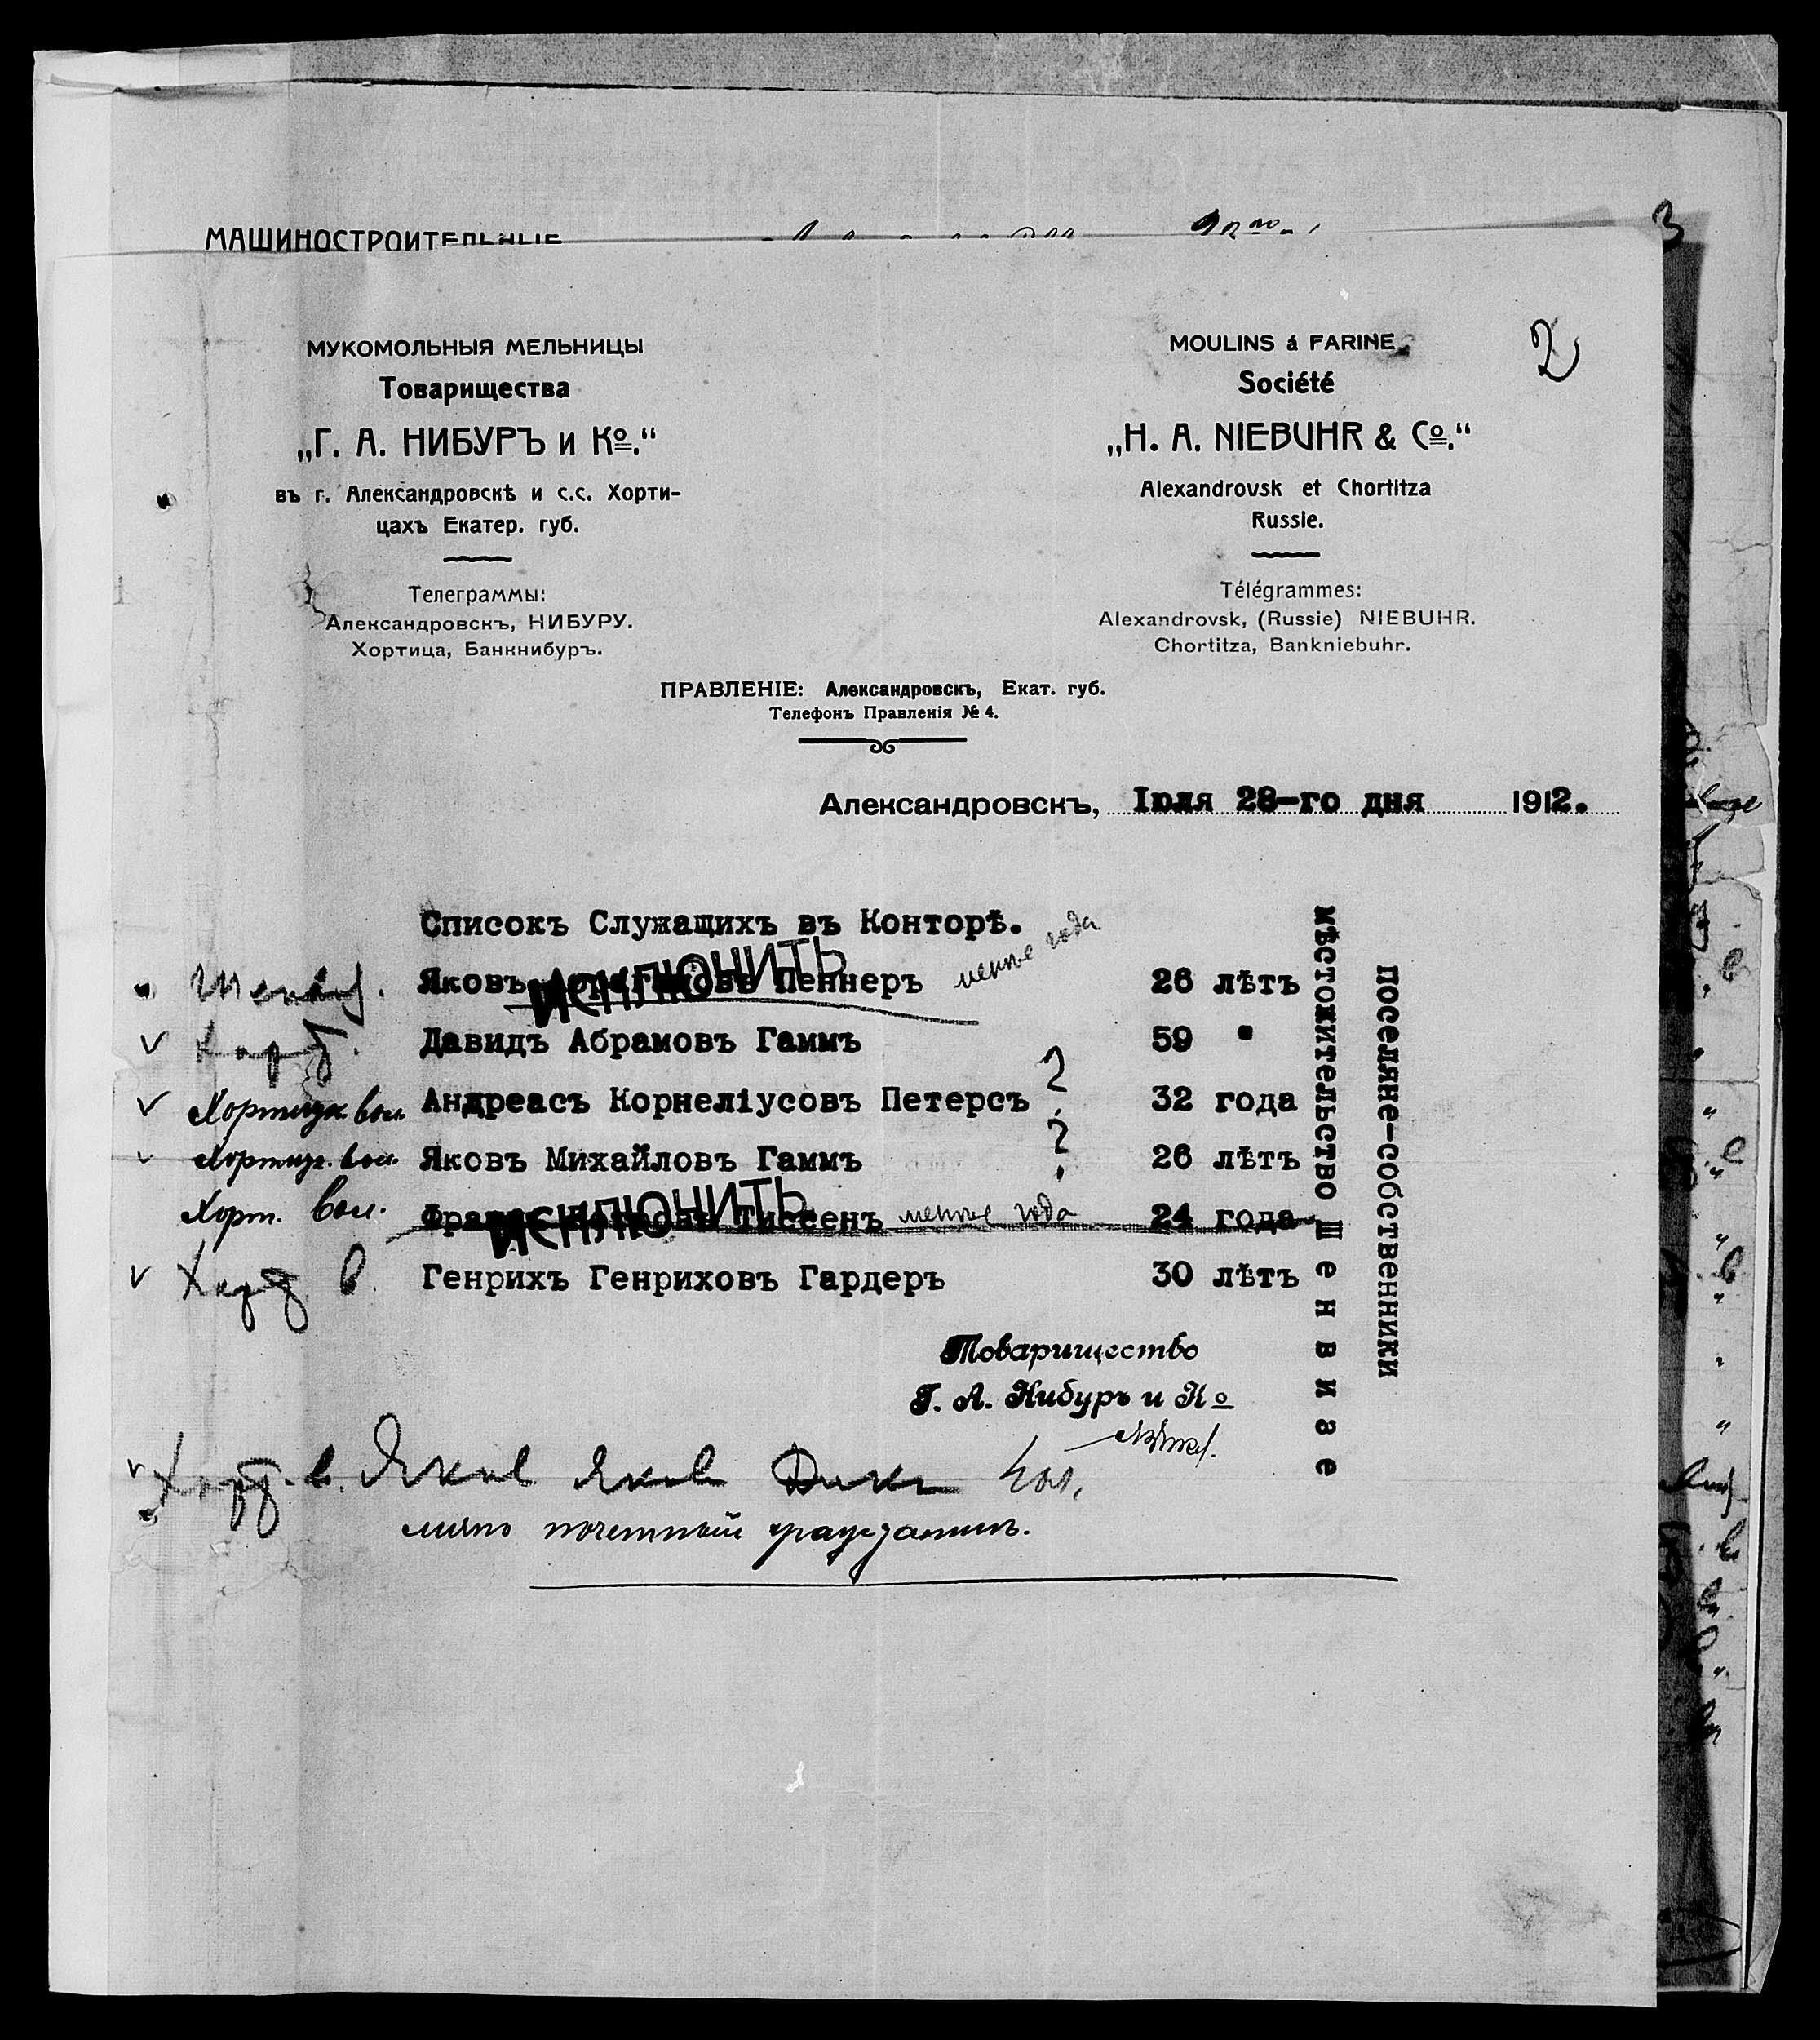 3
МАШИНОСТРОИТЕЛЬНЫЕ
2
МУКОМОЛЬНЫЯ МЕЛЬНИЦЫ
Товарищества
„Г. А. НИБУРЪ и Ко.“
въ г. Александровскѣ и с.с. Хорти-
цахъ Екатер. губ.
Телеграммы:
Александровскъ, НИБУРУ.
Хортица, Банкнибуръ.
MOULINS á FARINE
Société
„H. A. NIEBUHR & Co.“
Alexandrovsk et Chortitza
Russie.
Télégrammes:
Alexandrovsk, (Russie) NIEBUHR.
Chortitza, Bankniebuhr.
ПРАВЛЕНІЕ: Александровскъ, Екат. губ.
Телефонъ Правленія № 4.
Александровскъ, Іюля 28-го дня 1912.
Списокъ Служащихъ въ Конторѣ.
Яковъ Пеннеръ менѣе года 26 лѣтъ
ИСКЛЮЧИТЬ
Давидъ Абрамовъ Гаммъ 59 "
Хортицк. вол. Андреасъ Корнеліусовъ Петерсъ ? 32 года
Хортиц. вол. Яковъ Михайловъ Гаммъ ? 26 лѣтъ
Хорт. вол. Тиссенъ менѣе года 24 года
ИСКЛЮЧИТЬ
Хорт. в. Генрихъ Генриховъ Гардеръ 30 лѣтъ
мѣстожительство Шенвизе
поселяне-собственники
Товарищество
Г. А. Нибуръ и Ко
Хорт. в. Яков Яков Дик
лично почетный гражданинъ.